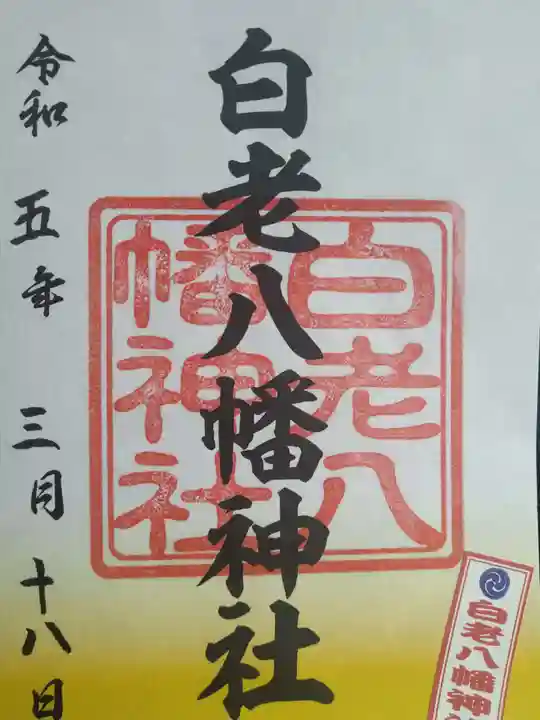 白老八幡神社
令和五年三月十八日
白老八
幡神社
白老八幡神